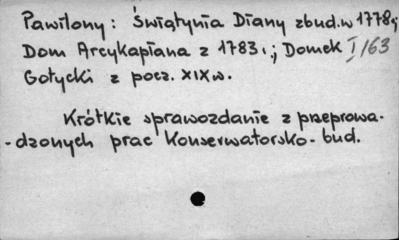 Pawilony: Świątynia Diany zbud.w 1778r;
Dom Arcykapłana z 1783r.; Domek I/63
Gotycki z pocz. XIX w.
Krótkie sprawozdanie z przeprowa-
-dzonych prac Konserwatorsko-bud.